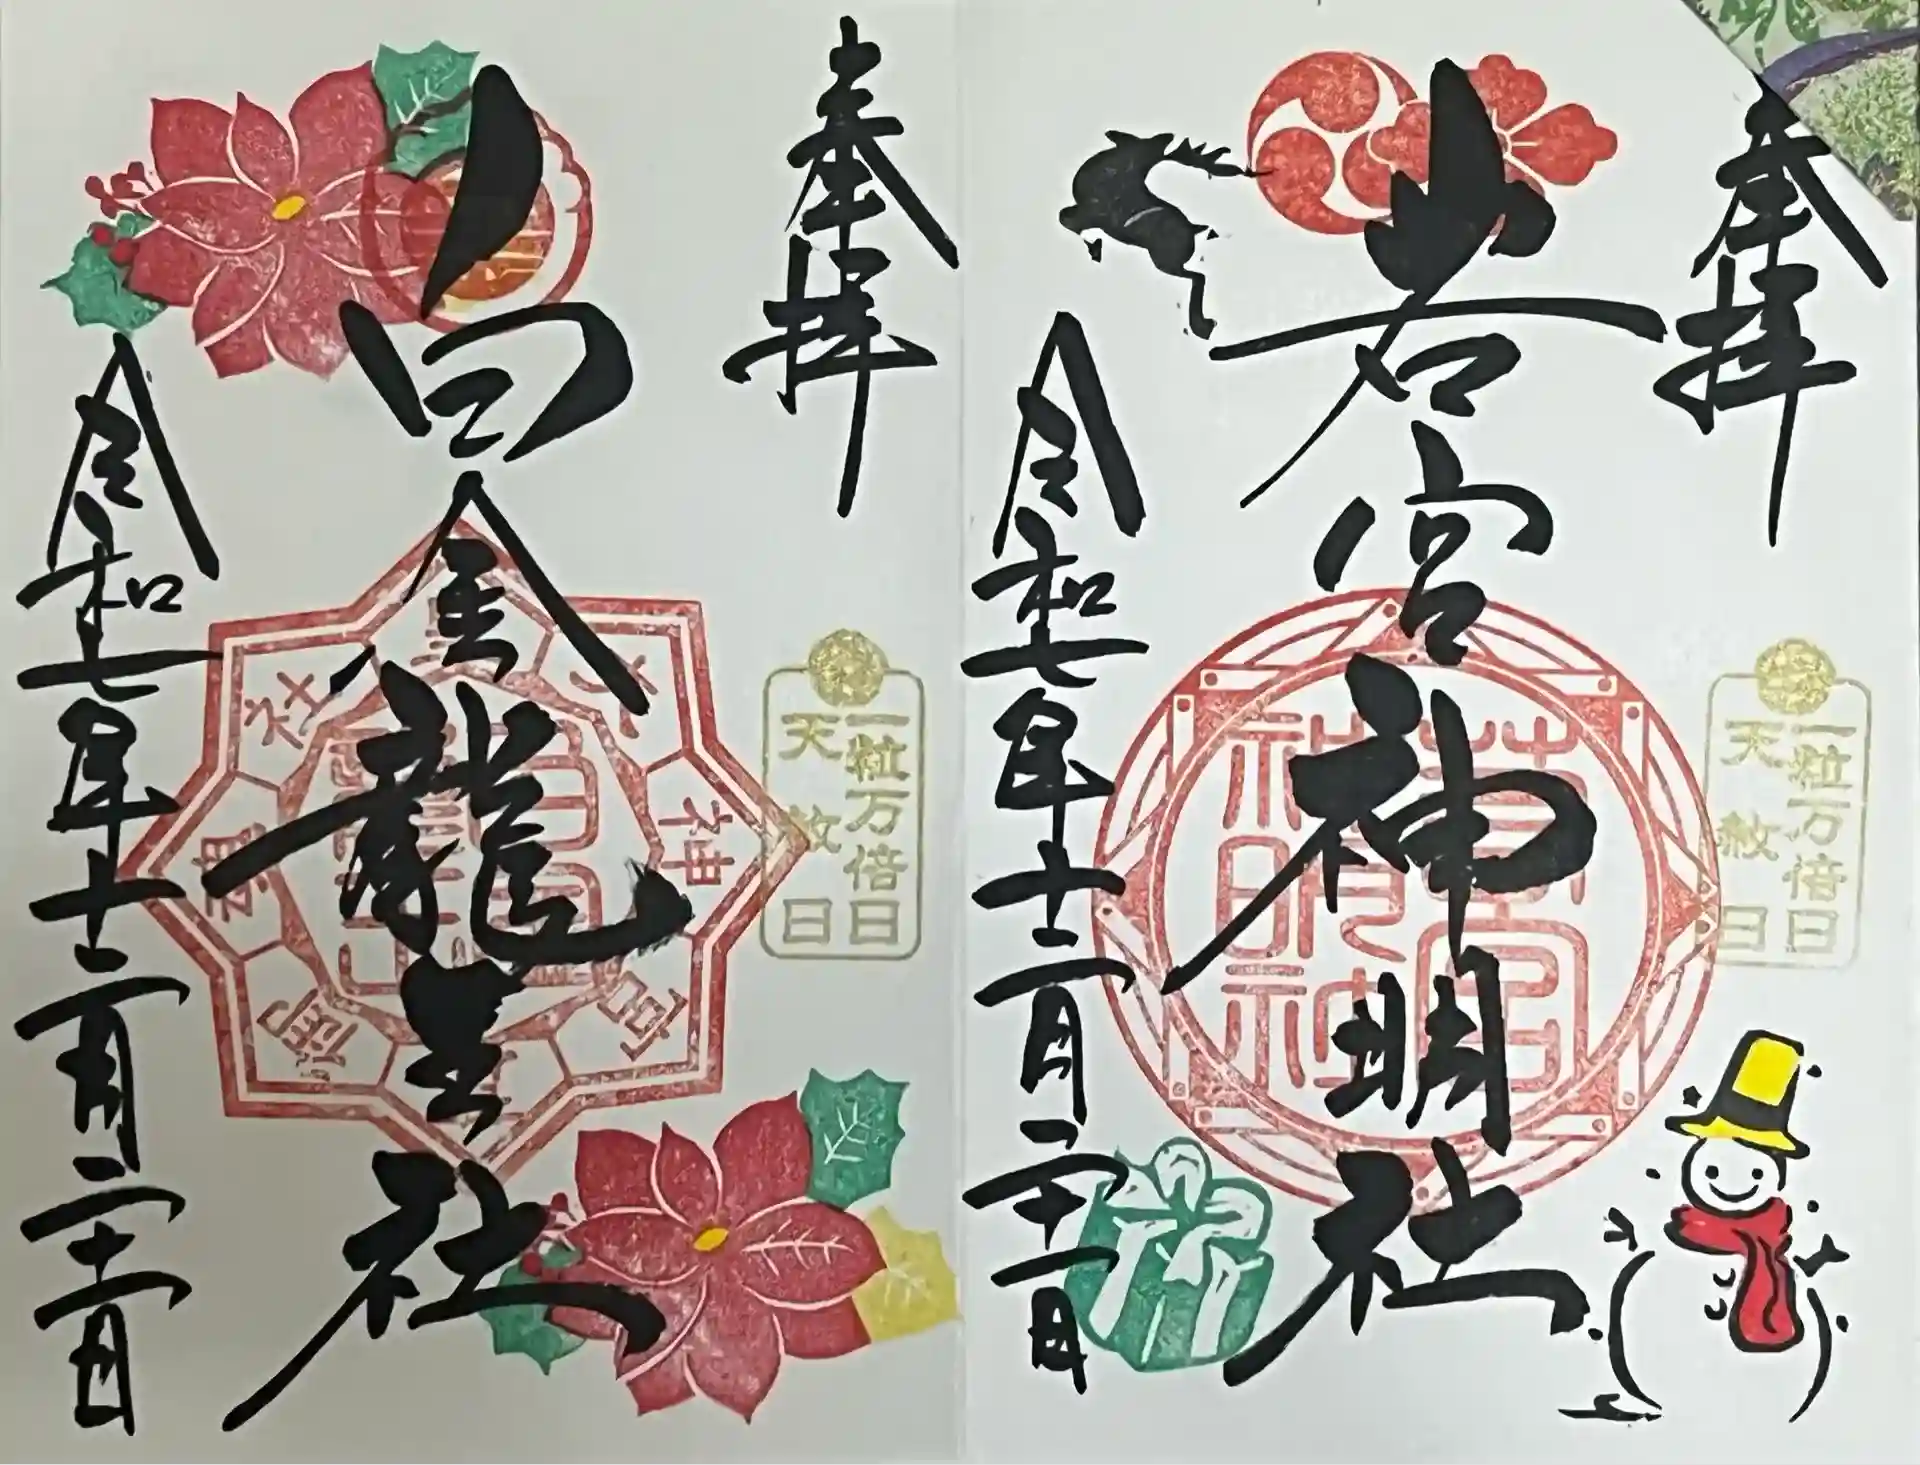 奉拝
若宮神明社
令和七年十二月二十一日
一粒万倍日
天赦日
奉拝
白金龍王社
令和七年十二月二十一日
一粒万倍日
天赦日